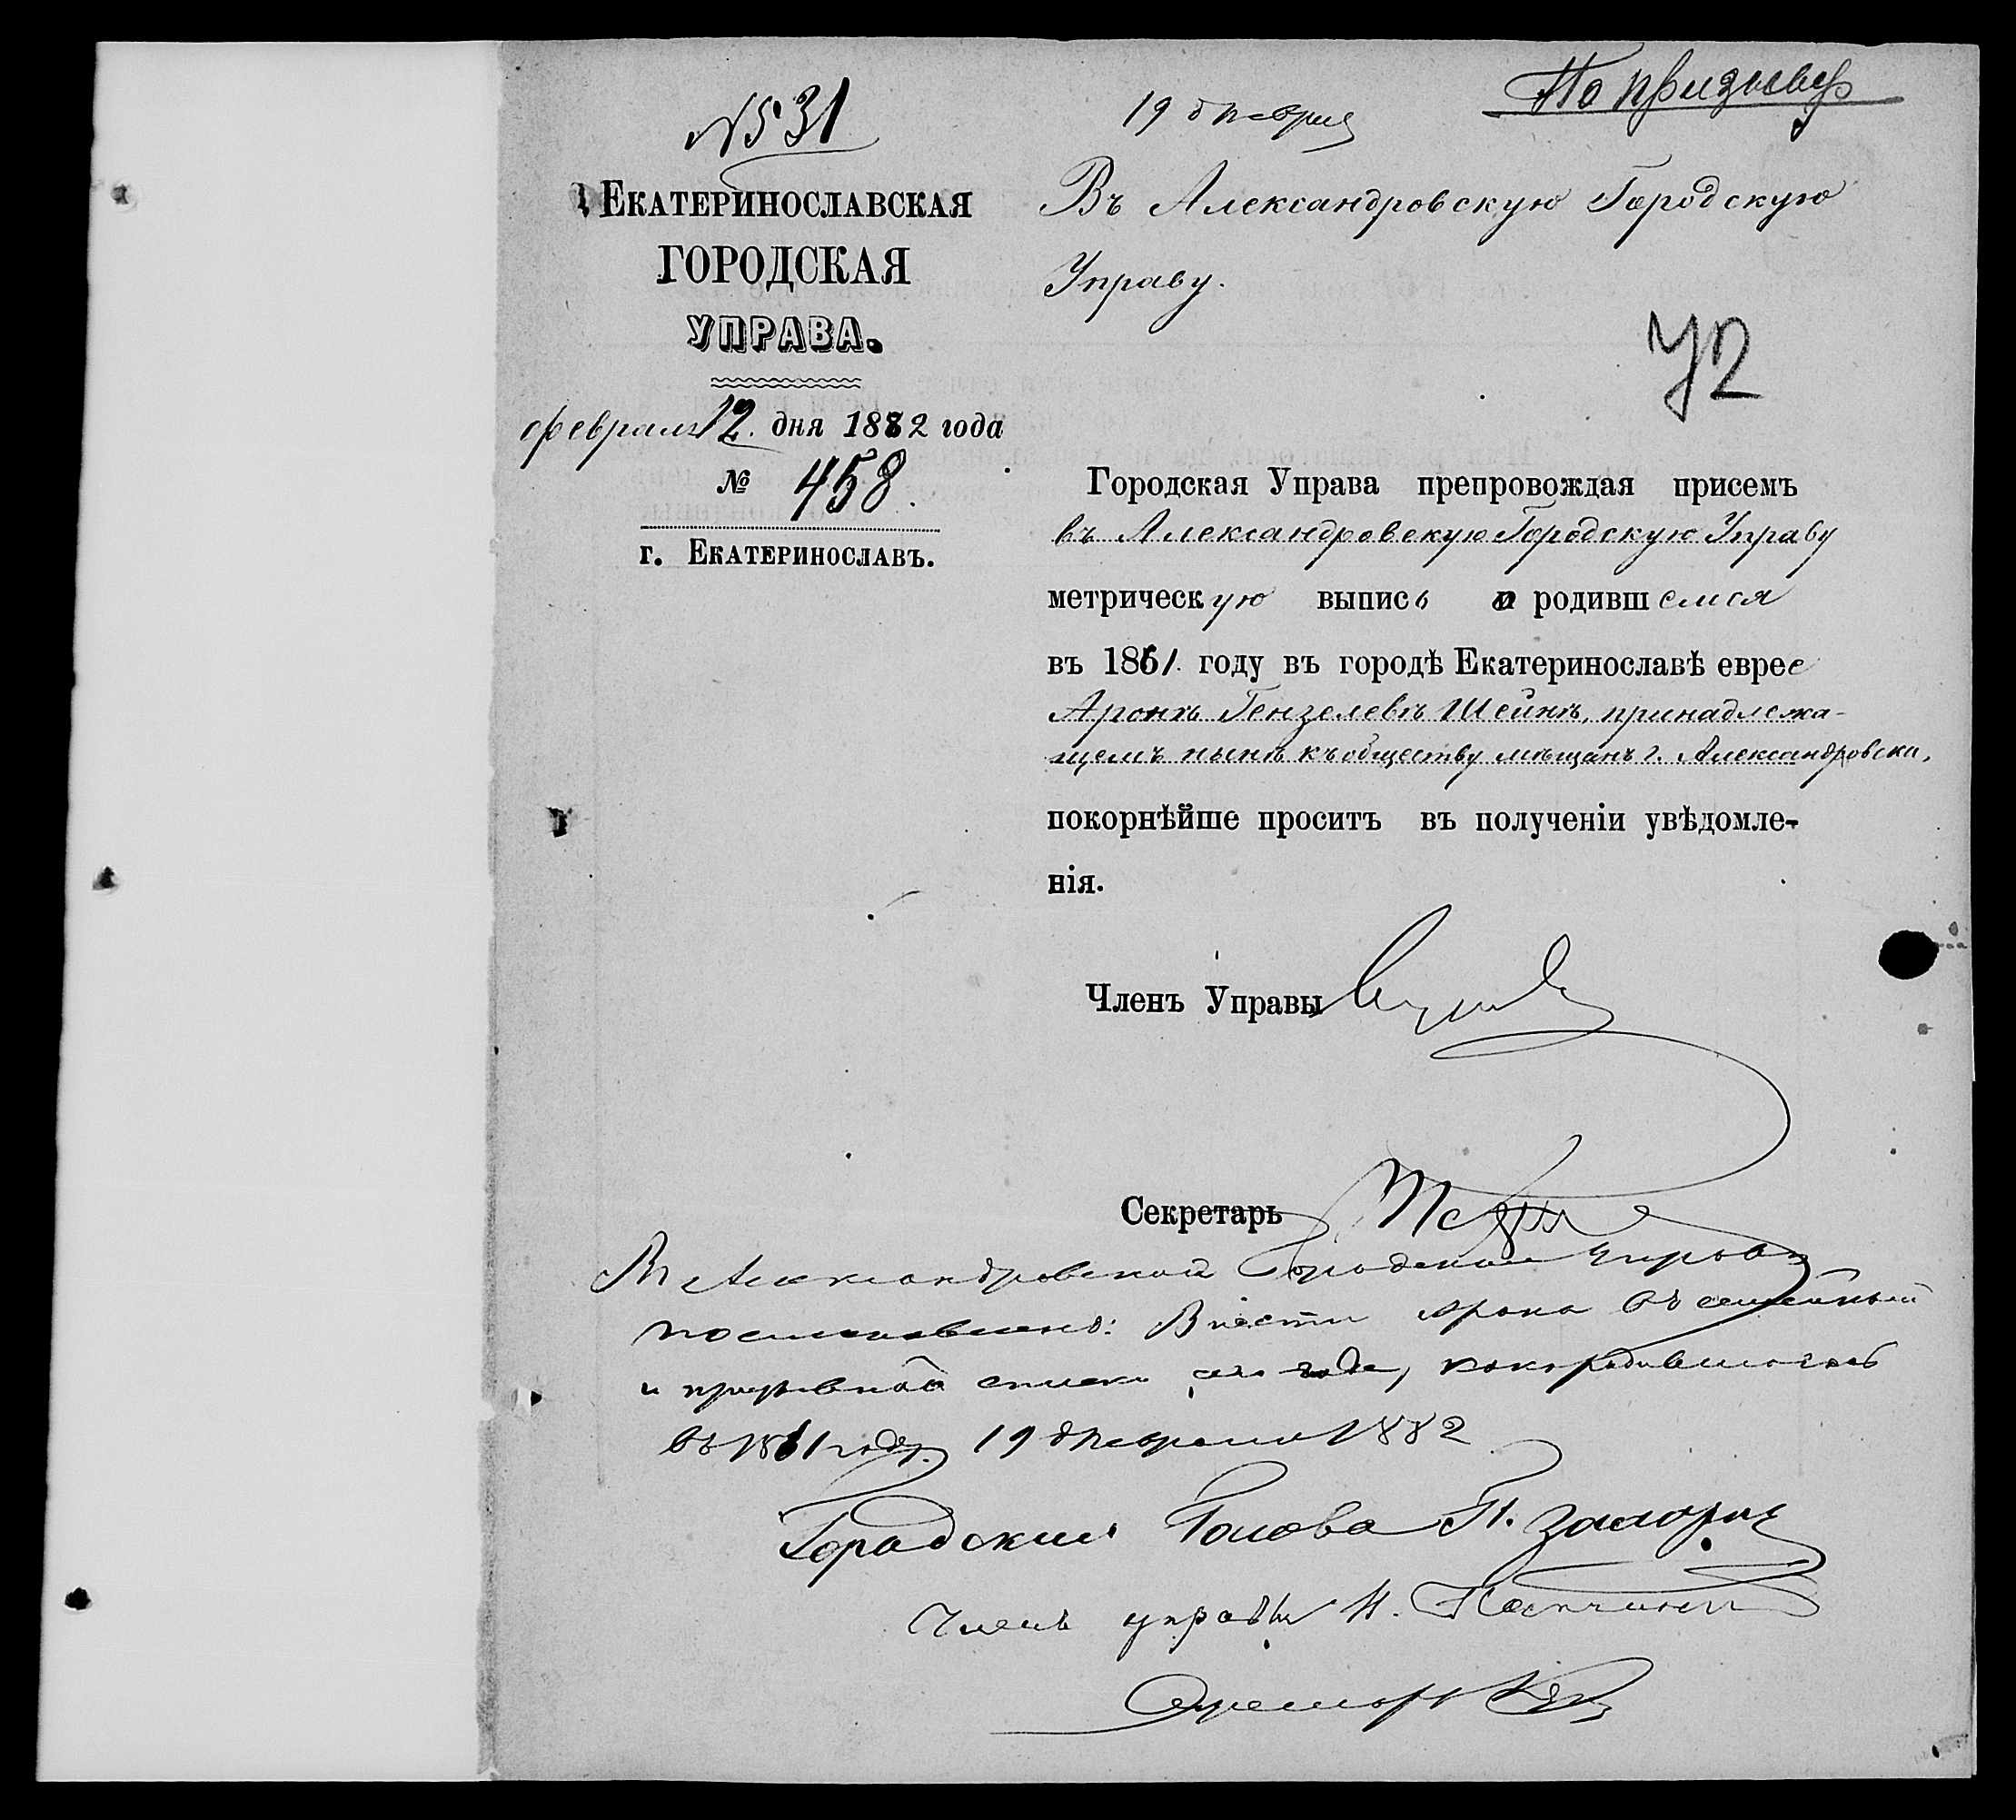 № 31
19 февраля
По призыву
ЕКАТЕРИНОСЛАВСКАЯ
ГОРОДСКАЯ
УПРАВА.
февраля 12. дня 1882 года
№ 458.
г. ЕКАТЕРИНОСЛАВЪ.
Въ Александровскую Городскую
Управу.
42
Городская Управа препровождая присемъ
въ Александровскую Городскую Управу
метрическую выпись о родившемся
въ 1861. году въ городѣ Екатеринославѣ еврее
Аронѣ Гензелевѣ Шейнѣ, принадлежа-
щемъ нынѣ къ обществу мѣщанъ г. Александровска,
покорнѣйше проситъ въ полученіи увѣдомле-
нія.
Членъ Управы
Секретарь
В Александровской Городской Управѣ
постановлено: Внести Арона въ семейный
и призывной списки сего года, какъ родившагося
въ 1861 году. 19 февраля 1882
Городский Голова П.
Членъ управы Н.